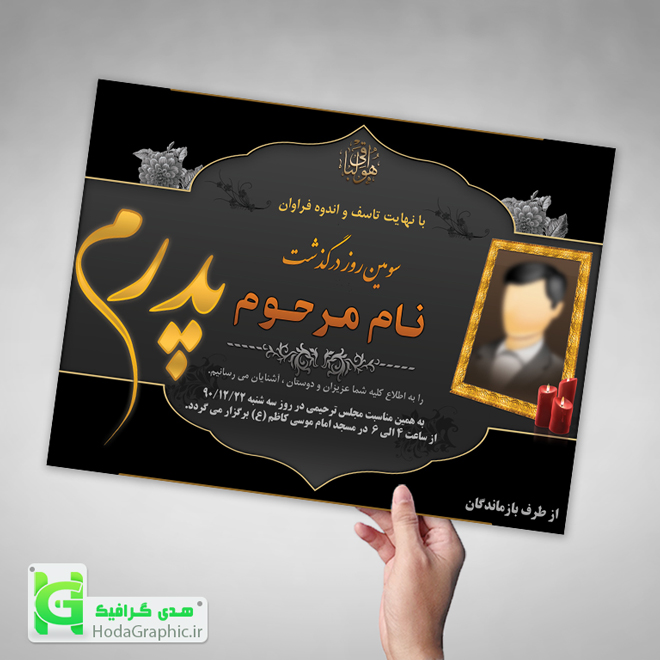 هوالباقی
با نهایت تاسف و اندوه فراوان
سومین روز درگذشت
نام مرحوم
پدرم
را به اطلاع کلیه شما عزیزان و دوستان ، آشنایان می رسانیم.
به همین مناسبت مجلس ترحیمی در روز سه شنبه ۹۰/۱۲/۲۲
از ساعت ۴ الی ۶ در مسجد امام موسی کاظم (ع) برگزار می گردد.
از طرف بازماندگان
هدی گرافیک
HodaGraphic.ir